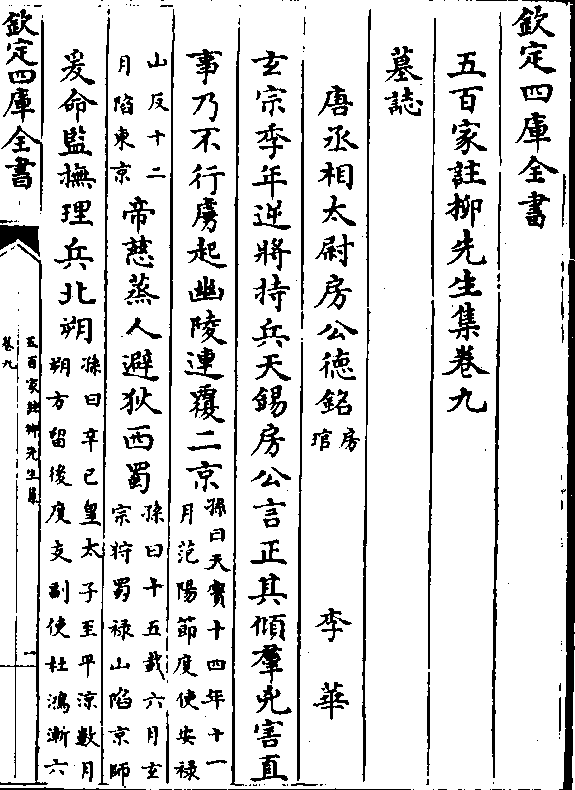 欽定四庫全書
五百家註栁先生集卷九
墓誌
唐丞相太尉房公德銘房琯
李華
玄宗季年逆將持兵天錫房公言正其傾羣兇害直
事乃不行虜起幽陵連覆二京孫曰天寳十四年十一月范陽節度使安禄
山反十二月陷東京帝慈蒸人避狄西蜀孫曰十五載六月玄宗狩蜀禄山陷京師
爰命監撫理兵北朔孫曰辛巳皇太子至平涼數月朔方留後度支副使杜鴻漸六
欽定四庫全書
五百家註栁先生集
卷九
一